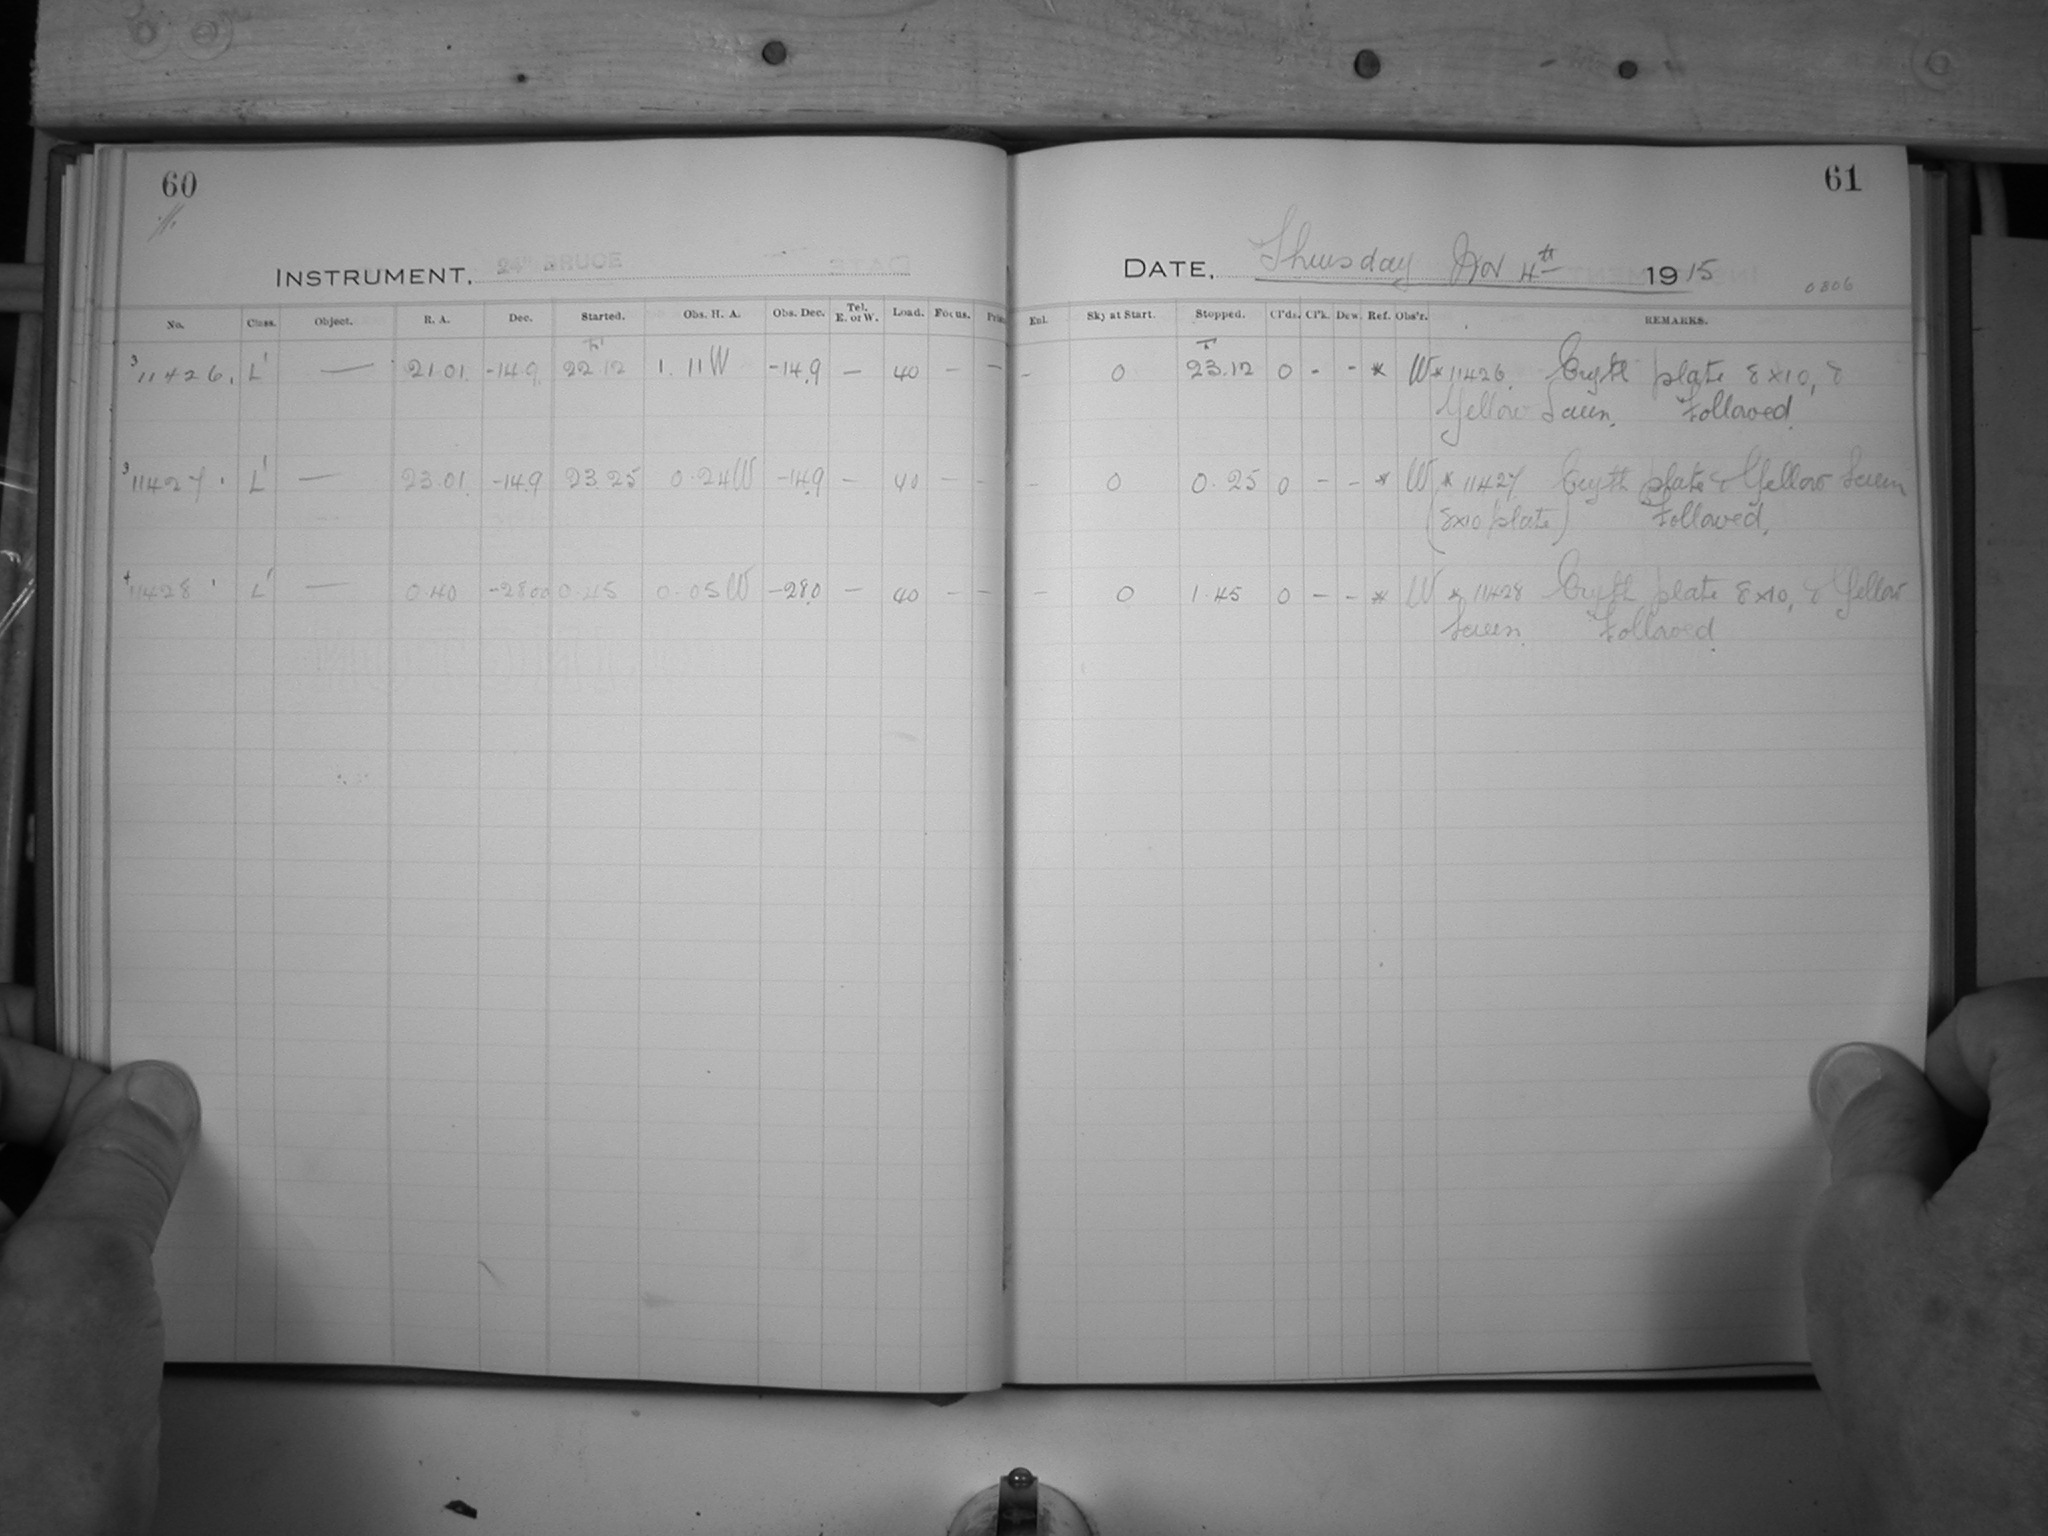 60
INSTRUMENT, 24" BRUCE
No. Class. Object. R. A. Dec. Started. Obs. H. A. Obs. Dec. Tel. E. or W. Load. Focus.
3 11426. L' — 21.01 -14.9 22.12 1.11 W -14.9 — 40 — —
3 11427. L' — 23.01 -14.9 23.25 0.24 W -14.9 — 40 — —
4 11428. L' — 0.40 -28.0 0.45 0.05 W -28.0 — 40 — —
61
DATE, Thursday Nov 4th 1915
0806
Enl. Sky at Start. Stopped. Cl'ds. Cl'k. Dew. Ref. Obs'r. REMARKS.
- 0 23.12 0 - - * W * 11426. Cryth plate 8x10, &
Yellow Screen. Followed.
- 0 0.25 0 - - * W * 11427 Cryth plate & Yellow Screen
(8x10 plate) Followed.
- 0 1.45 0 - - * W * 11428 Cryth plate 8x10, & Yellow
Screen. Followed.